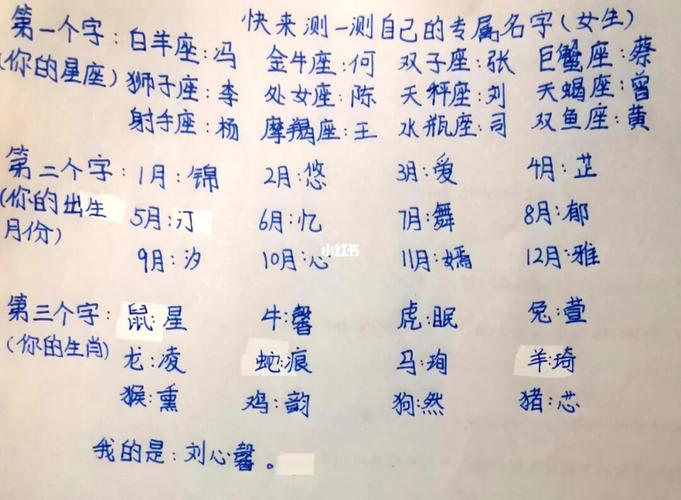 快来测一测自己的专属名字(女生)
第一个字:白羊座:冯 金牛座:何 双子座:张 巨蟹座:蔡
(你的星座)狮子座:李 处女座:陈 天秤座:刘 天蝎座:曾
射手座:杨 摩羯座:王 水瓶座:司 双鱼座:黄
第二个字:1月:锦 2月:悠 3月:爱 4月:芷
(你的出生月份) 5月:汀 6月:忆 7月:舞 8月:郁
9月:汐 10月:心 11月:嫣 12月:雅
小红书
第三个字:鼠:星 牛:馨 虎:眠 兔:萱
(你的生肖) 龙:凌 蛇:痕 马:珣 羊:琦
猴:熏 鸡:韵 狗:然 猪:芯
我的是:刘心馨。